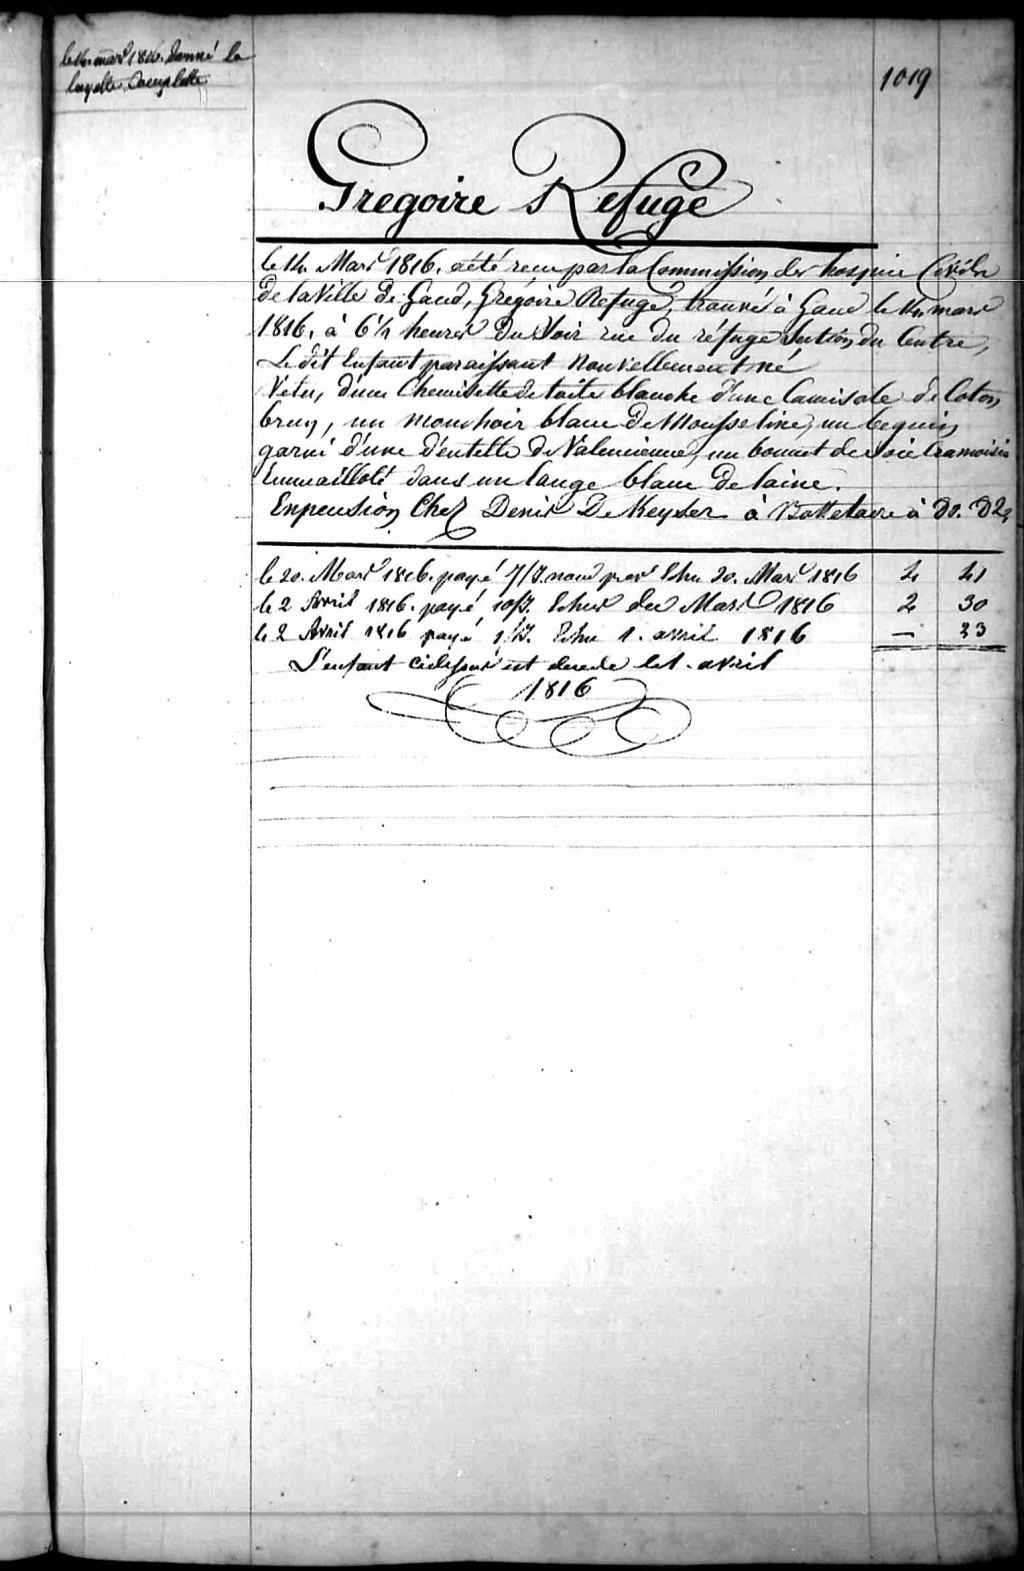 le 16. mars 1816. donné la
layette Complette
1019
Gregoire Refuge
le 14 Mars 1816. a été recu par la Commission des hospice Civils
de la Ville de Gand, Grégoire Refuge, trouvé à Gand le 14 mars
1816. à 6½ heures du Soir rue du réfuge Section du Centre,
Le dit Enfant paraissant nouvellement né
Vetu, d'une Chemisette de toile blanche d'une Camisole de Coton
brun, un mouchoir blanc de Mousseline, un beguin
garni d'une d'entelle de Valencienne, un bonnet de soie Cramoisie
Emmailloté dans un lange blanc de laine.
En pension Chez Denis De Keyser à
le 20. Mars 1816. payé Echu 20. Mars 1816 4 41
le 2 Avril 1816. payé Echus de Mars 1816 2 30
le 2 Avril 1816 payé Echu 1. avril 1816 — 23
L'enfant cidessus est decede le 1. avril
1816